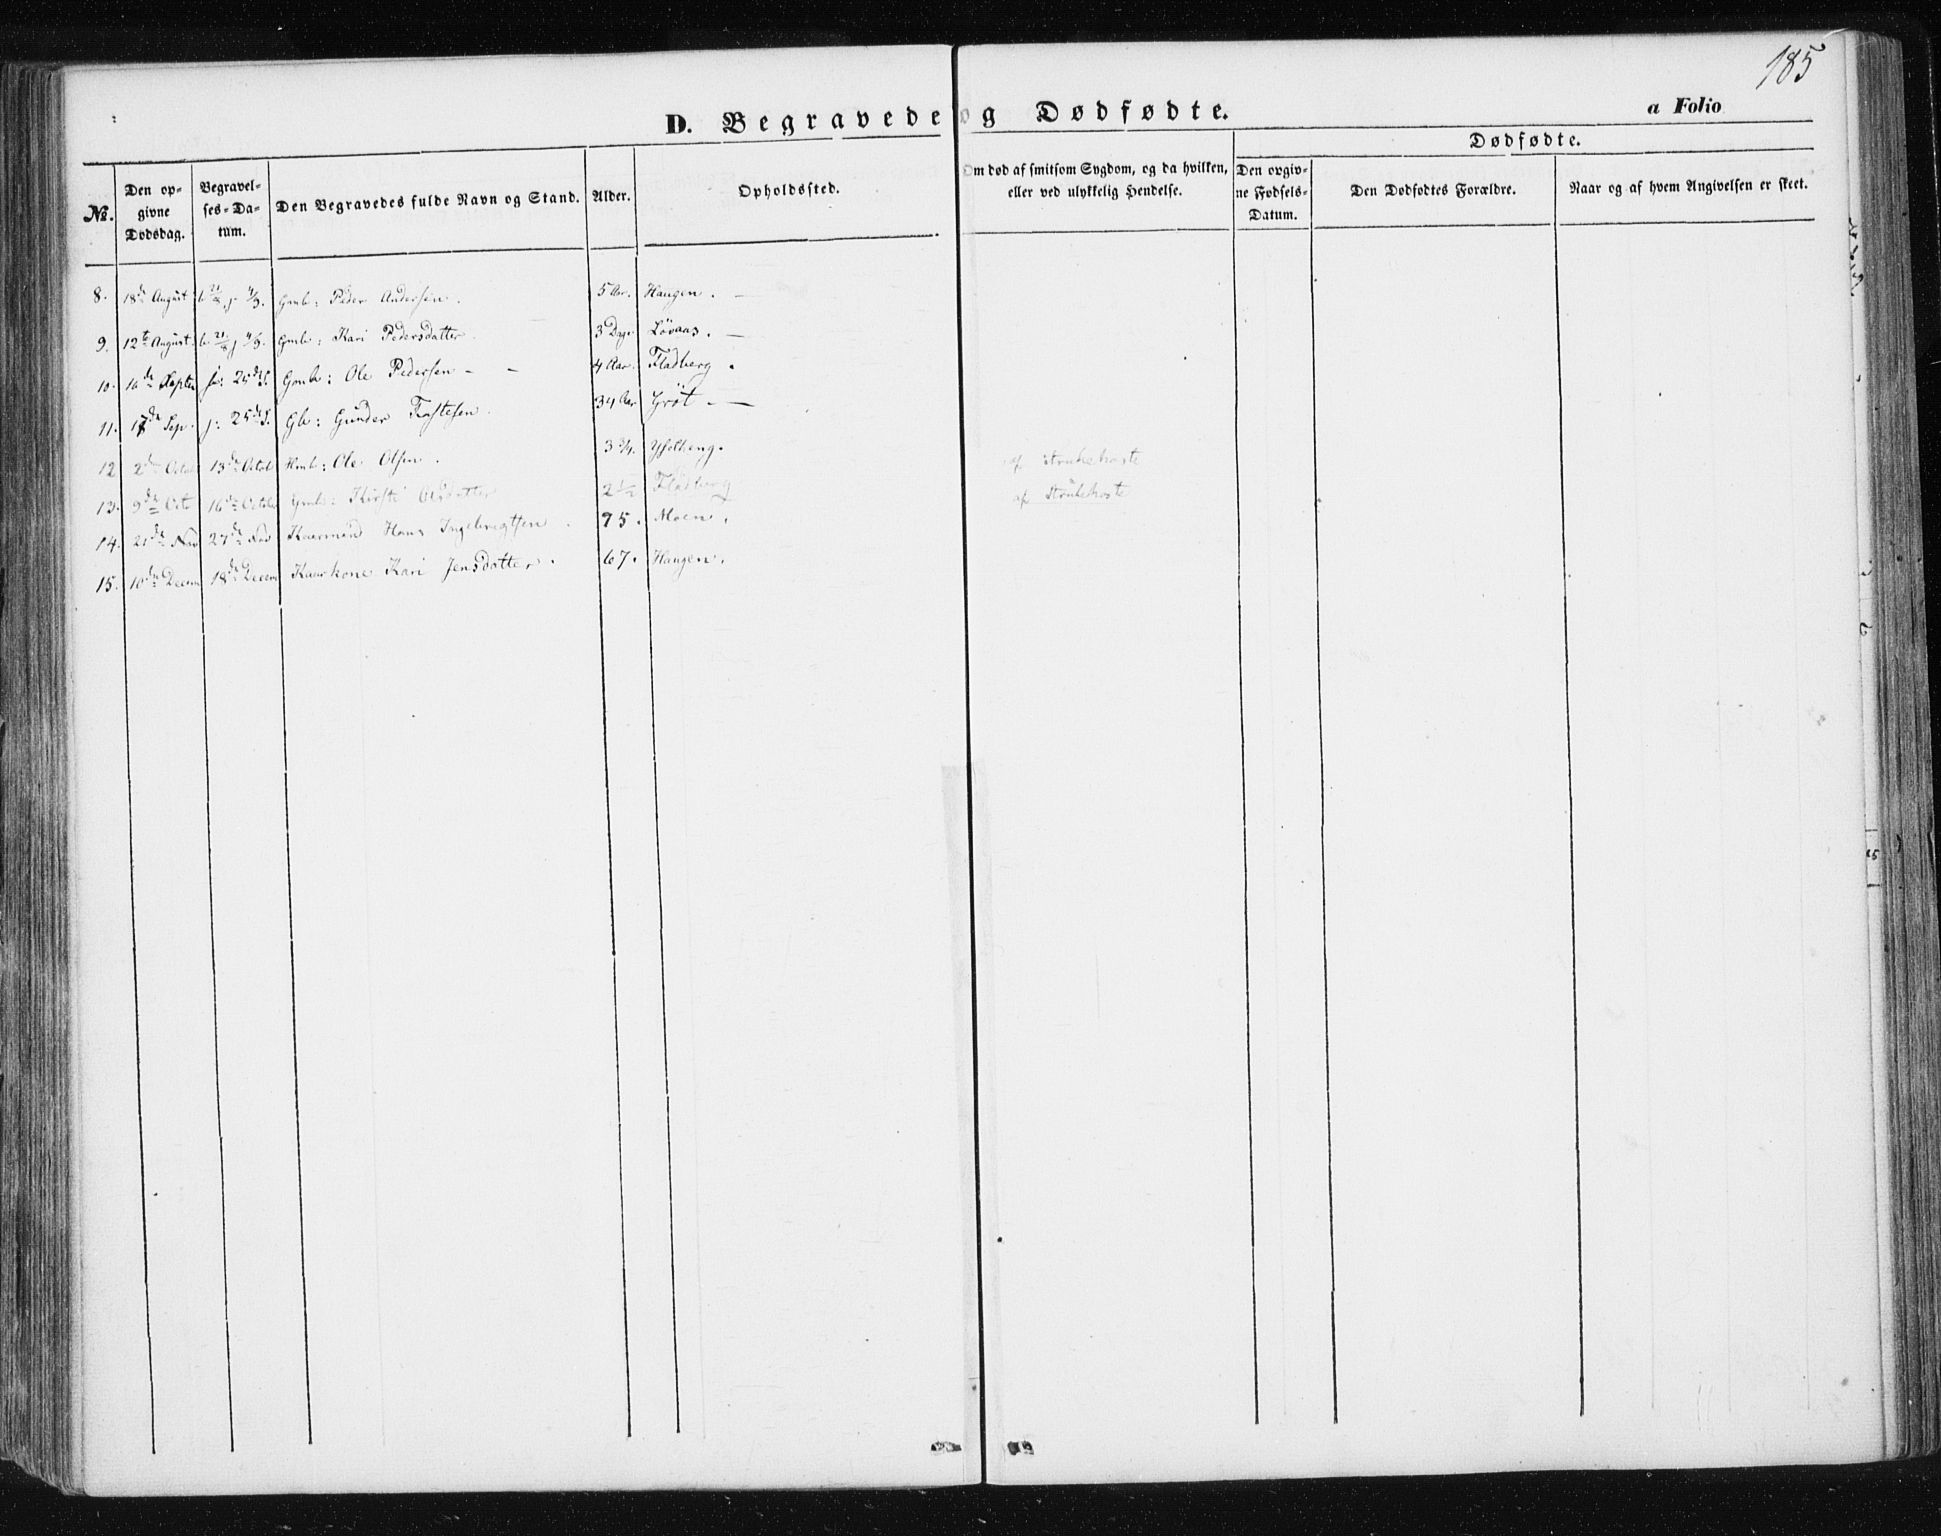 185
D. Begravede og Dødfødte.
a Folio
Dødfødte.
No.
Den op-
givne
Dødsdag.
Begravel-
ses-Da-
tum.
Den Begravedes fulde Navn og Stand.
Alder.
Opholdssted.
Om død af smitsom Sygdom, og da hvilken,
eller ved ulykkelig Hendelse.
Den opgiv-
ne Fødsels-
Datum.
Den Dødfødtes Forældre.
Naar og af hvem Angivelsen er skeet.
8. 18de August b 21/8 j. 4/9. Gmb: Peder Andersen. 5 Aar. Haugen. —
9. 12te August. b. 21/8 j 4/9. Gmb: Kari Pedersdatter. 3 Dage Lövaas. —
10. 16de Septem 25de S. Gmb: Ole Pedersen - - 4 Aar. Fladberg.
11. 17de Sep. j: 25de S. Gb: Gunder Fastesen. 34 Aar Gröt. —
12 2de Octob 13de Octob Hmb: Ole Olsen. 3 3/4. af Strubehoste
13. 9de Oct 16de October Gmb: Kirsti Olsdatter 2 1/2 Fladberg af Strubehoste
14. 21de Nov 27de Nov Kaarmand Hans Ingebrigtsen. 75. Moen.
15. 10de Decem 18de Decem Kaarkone Kari Jensdatter. 67. Haugen.